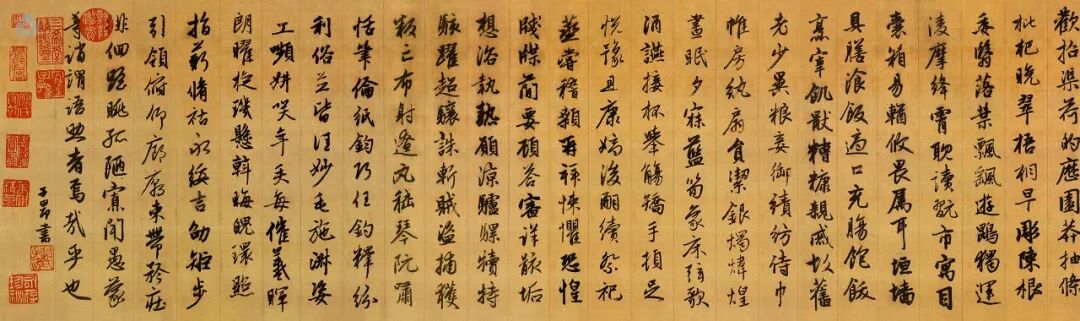 歡招渠荷的歷園莽抽條
枇杷晚翠梧桐早彫陳根
委翳落葉飄飄遊鵾獨運
凌摩絳霄耽讀翫市寓目
囊箱易輶攸畏屬耳垣墻
具膳飡飯適口充腸飽飫
烹宰飢猒糟糠親戚故舊
老少異粮妾御績紡侍巾
帷房紈扇員潔銀燭煒煌
晝眠夕寐藍笋象床弦歌
酒讌接杯舉觴矯手頓足
悅豫且康嫡後嗣續祭祀
蒸嘗稽顙再拜悚懼恐惶
牋牒簡要顧答審詳骸垢
想浴執熱願涼驢騾犢特
駭躍超驤誅斬賊盜捕獲
叛亡布射遼丸嵇琴阮嘯
恬筆倫紙鈞巧任釣釋紛
利俗並皆佳妙毛施淑姿
工嚬妍笑年矢每催羲暉
朗曜旋璣懸斡晦魄環照
指薪脩祜永綏吉劭矩步
引領俯仰廊廟束帶矜莊
徘徊瞻眺孤陋寡聞愚蒙
等誚謂語助者焉哉乎也
子昂書